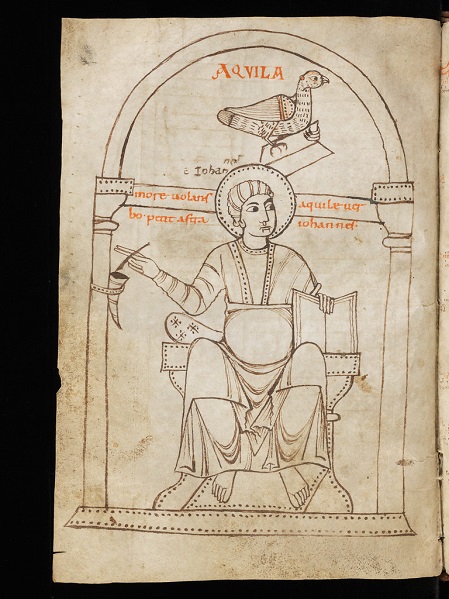 AQVILA
Iohan
more uolans aquilæ uer
bo· petit astra iohannes·